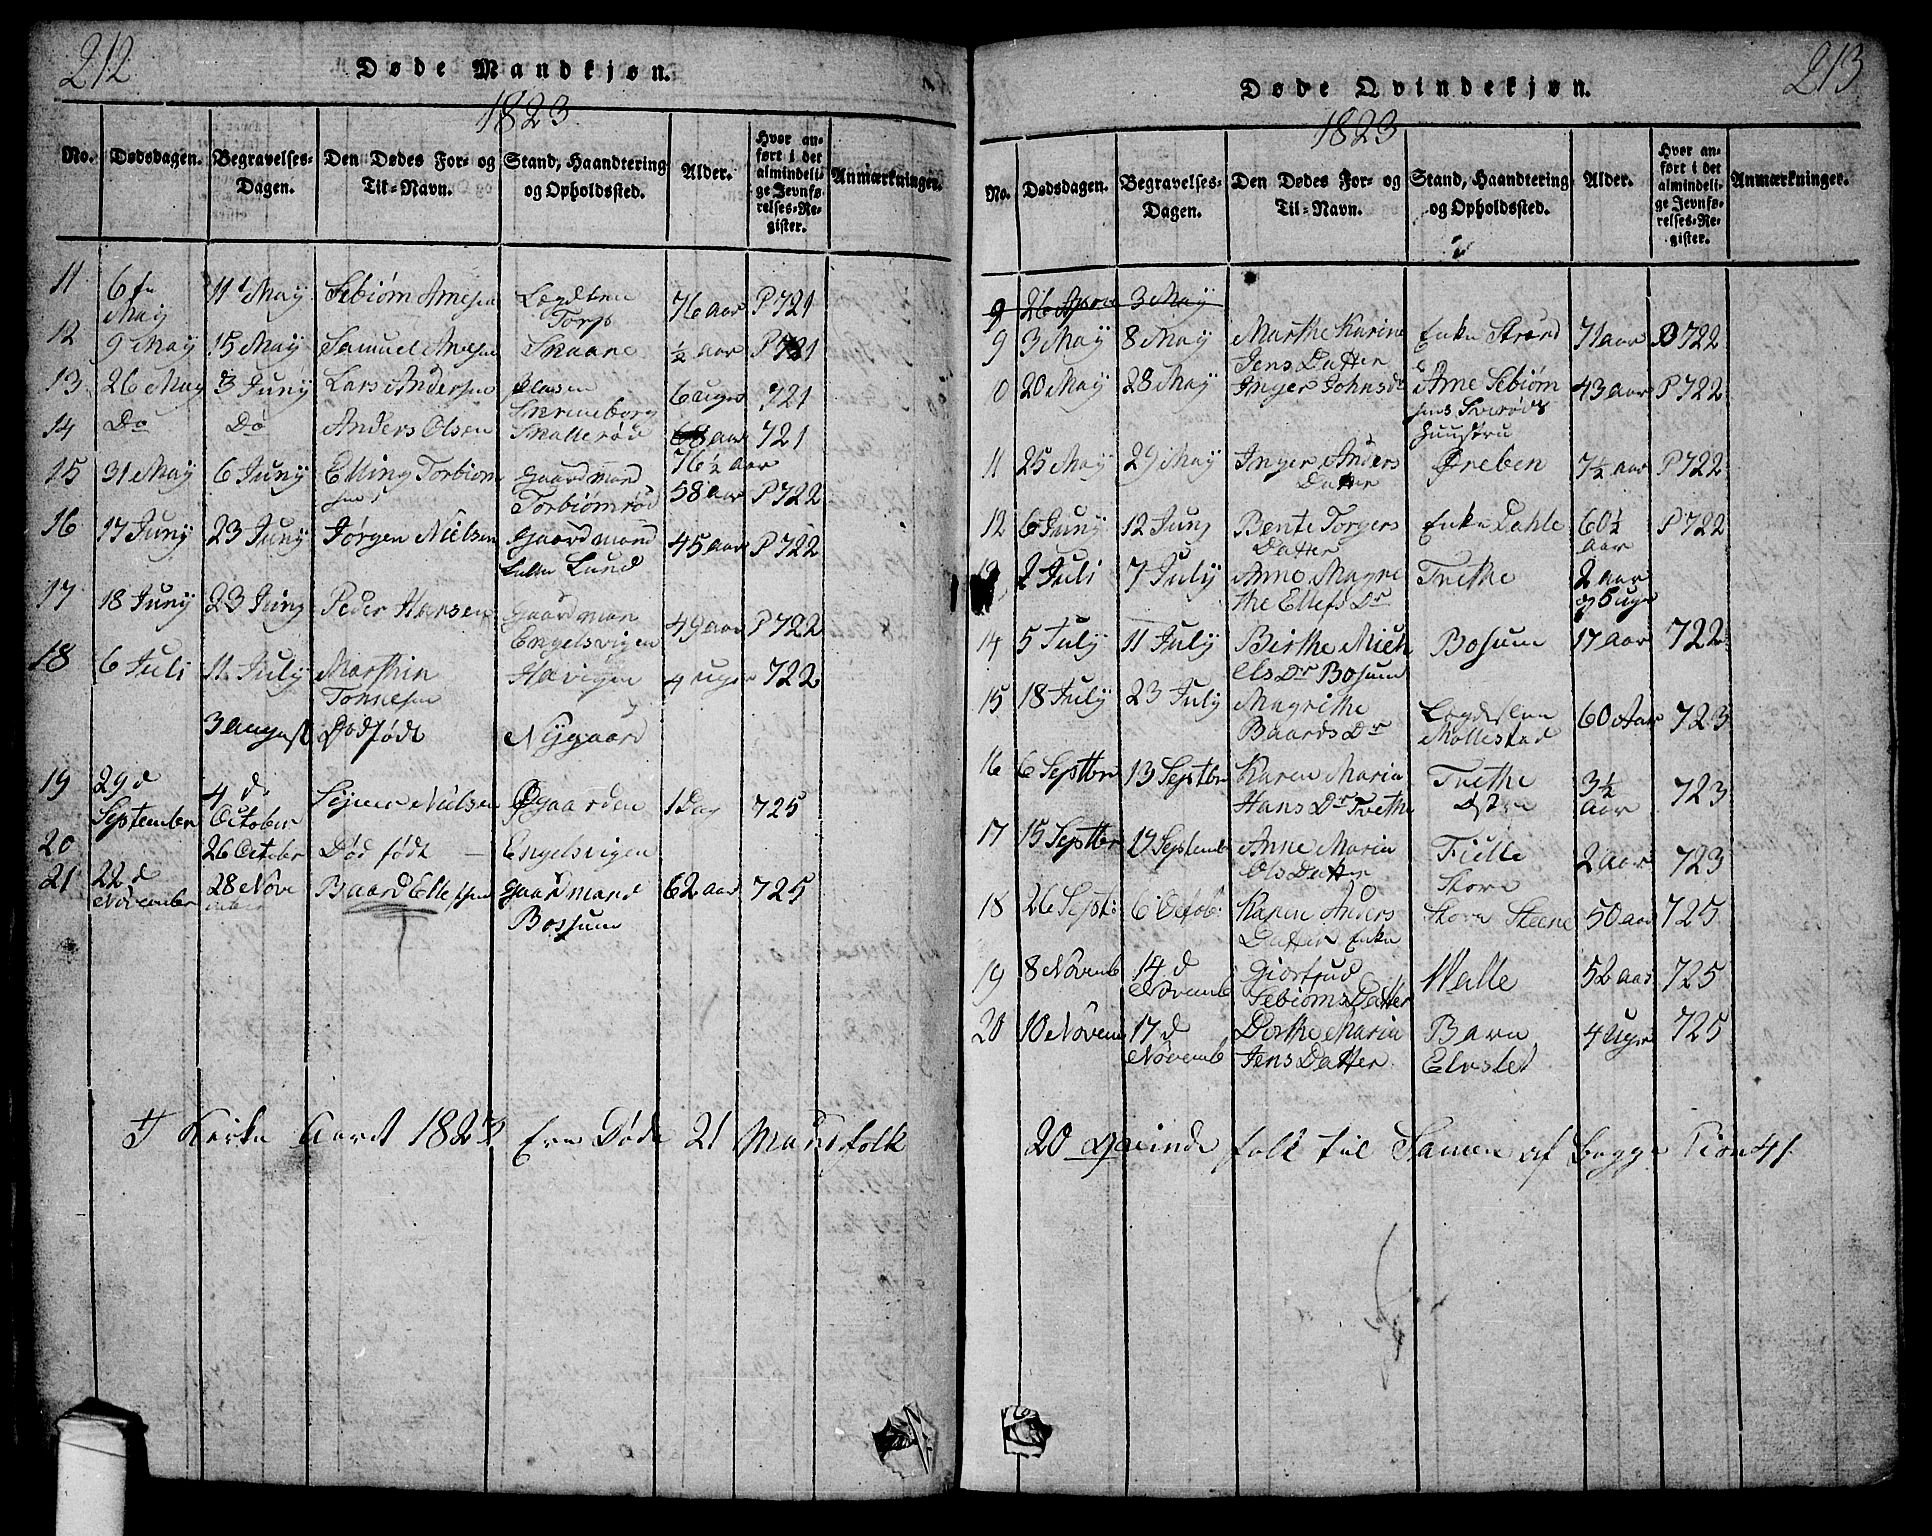 212
Døde Mandkjøn.
1823
No. Dødsdagen. Begravelses-Dagen. Den Dødes For- og Til-Navn. Stand, Haandtering og Opholdssted. Alder. Hvor anført i det almindelige Jevnførelses-Register. Anmærkninger.
11 6 May 11 May Sebiørn Arnesen Torp 76 aar P 721
12 9 May 15 May Samuel Arnesen Skaare ½ aar P 721
13 26 May 3 Juny Lars Andersen 6 uger 721
14 Do Do Anders Olsen Skallerød 76½ aar 721
15 31 May 6 Juny Elling Torbiørnsen Gaardmand Torbiørnrød 58 aar P 722
16 17 Juny 23 Juny Jørgen Nielsen Gaardmand Lund 45 aar P 722
17 18 Juny 23 Juny Peder Hansen Gaardman Engelsvigen 49 aar P 722
18 6 Juli 11 July Marthin Tonnesen 4 uger 722
3 august Dødfødt Nygaard
19 29 d September 4 d October Nielsen 1 Dag 725
20 26 October Død født — Engelsvigen
21 22 d November 28 November Baard Ellefsen gaardmand Bossum 62 aar 725
Kirke Aaret 1823 Ere Døde 21 Mandfolk
213
Døde Qvindekjøn.
1823
No. Dødsdagen. Begravelses-Dagen. Den Dødes For- og Til-Navn. Stand, Haandtering og Opholdssted. Alder. Hvor anført i det almindelige Jevnførelses-Register. Anmærkninger.
9 26 April 3 May
9 3 May 8 May Marthe Karine Jens Datter Enke Strand 71 aar 722
0 20 May 28 May Inger Johnsdr Arne Sebiørnsens Huustru 43 aar P 722
11 25 May 29 May Inger Anders Datter Ørebek 7½ aar P 722
12 6 Juny 12 Juny Bente Torgers Datter Enke Dahle 60½ aar P 722
13 2 Juli 7 July Anne Magrethe Ellefs Dr Træthe 2 aar og 5 uger
14 5 July 11 July Birthe Michels Dr Bosum Bosum 17 aar 722
15 18 July 23 July Magrethe Baards Dr Mollestad 60 Aar 723
16 6 Septbr 13 Septbr Karen Maria Hans Dr Træthe Træthe Østre 3½ aar 723
17 15 Septbr 19 Septemb Anne Maria Ols Datter Fielle Store 2 aar 723
18 26 Sept: 6 Octob: Karen Anders Datter Enke Store Steene 50 aar 725
19 8 Novemb 14 d Novemb Giertrud Sebiørns Datter Walle 52 aar 725
20 10 Novem 17 d Novemb Dorthe Maria Jens Datter Barn Elvsted 4 Uger 725
20 Qvinde folk til Samen af begge Kiøn 41.